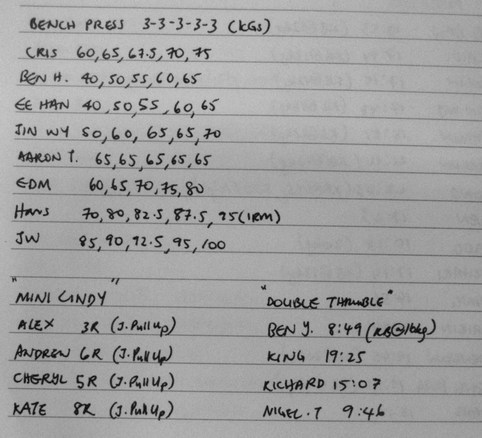 BENCH PRESS 3-3-3-3-3 (KGs)
CRIS 60,65,67.5,70,75
BEN H. 40,50,55,60,65
EE HAN 40,50,55,60,65
JIN WY 50,60,65,65,70
AARON T. 65,65,65,65,65
EDM 60,65,70,75,80
HANS 70,80,82.5,87.5,95(1RM)
JW 85,90,92.5,95,100
"MINI CINDY"
ALEX 3R (J.PullUp)
ANDREW 6R (J.PullUp)
CHERYL 5R (J.PullUp)
KATE 8R (J.PullUp)
"DOUBLE THRUMBLE"
BEN Y. 8:49 (KB@16kg)
KING 19:25
RICHARD 15:07
NIGEL.T 9:46